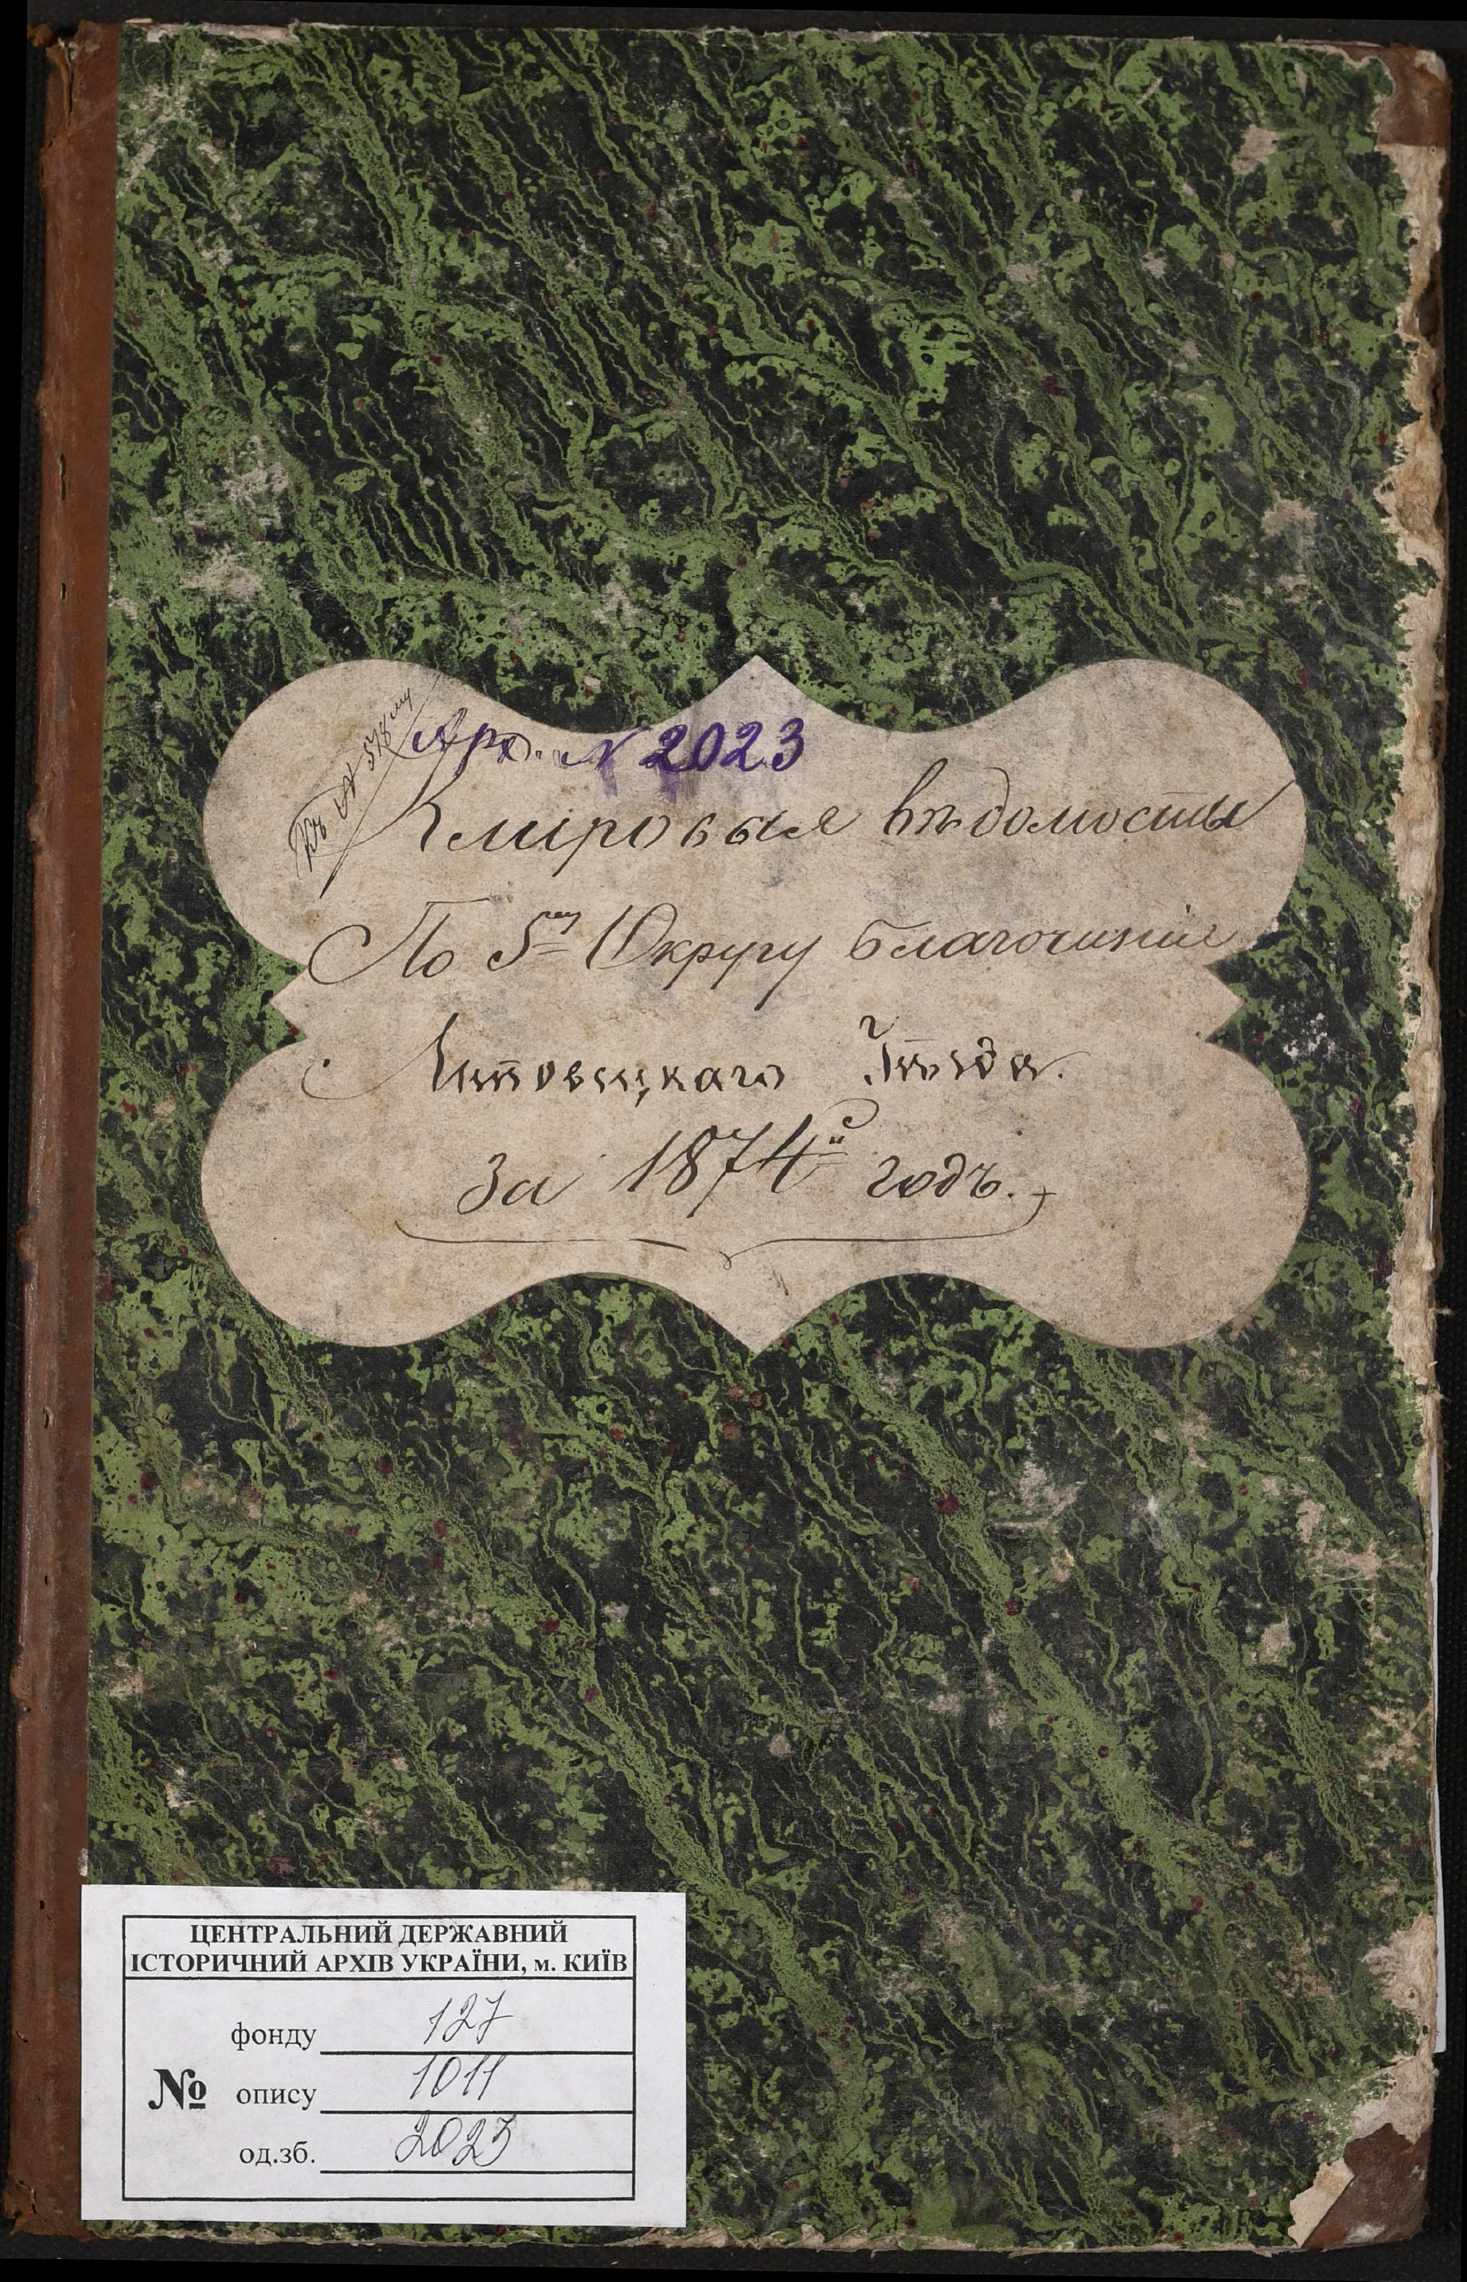 Къ № 578му
Арх. № 2023
Клировыя вѣдомости
По 5му Округу Благочинія
Липовецкаго Уѣзда.
за 1874й годъ.
ЦЕНТРАЛЬНИЙ ДЕРЖАВНИЙ
ІСТОРИЧНИЙ АРХІВ УКРАЇНИ, м. КИЇВ
фонду 127
№ опису 1011
од.зб. 2023